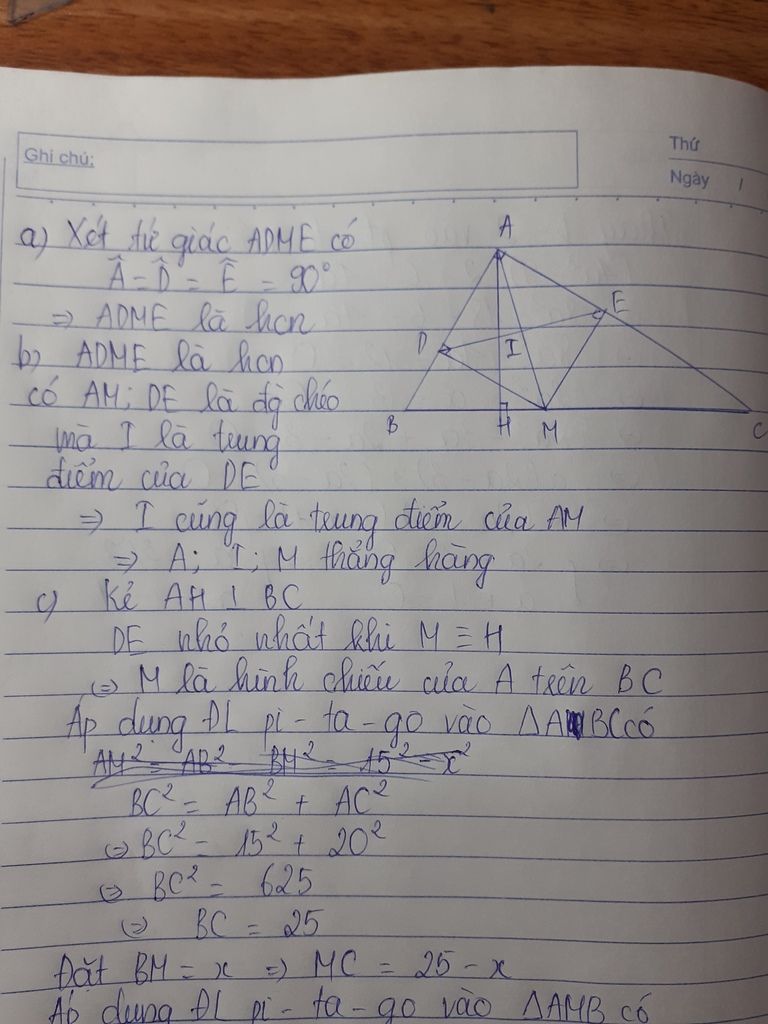 Ghi chú:
Thứ
Ngày
a) Xét tứ giác ADME có
Â = D̂ = Ê = 90°
=> ADME là hcn
b) ADME là hcn
có AM; DE là đg chéo
mà I là trung
điểm của DE
=> I cũng là trung điểm của AM
=> A; I; M thẳng hàng
A
D
E
I
B
H
M
C
c) Kẻ AH ⊥ BC
DE nhỏ nhất khi M ≡ H
(=) M là hình chiếu của A trên BC
Áp dụng ĐL pi-ta-go vào ΔABC có
AM² = AB² - BM² = 15² - x²
BC² = AB² + AC²
(=) BC² = 15² + 20²
(=) BC² = 625
(=) BC = 25
Đặt BM = x => MC = 25 - x
Áp dụng ĐL pi-ta-go vào ΔAMB có